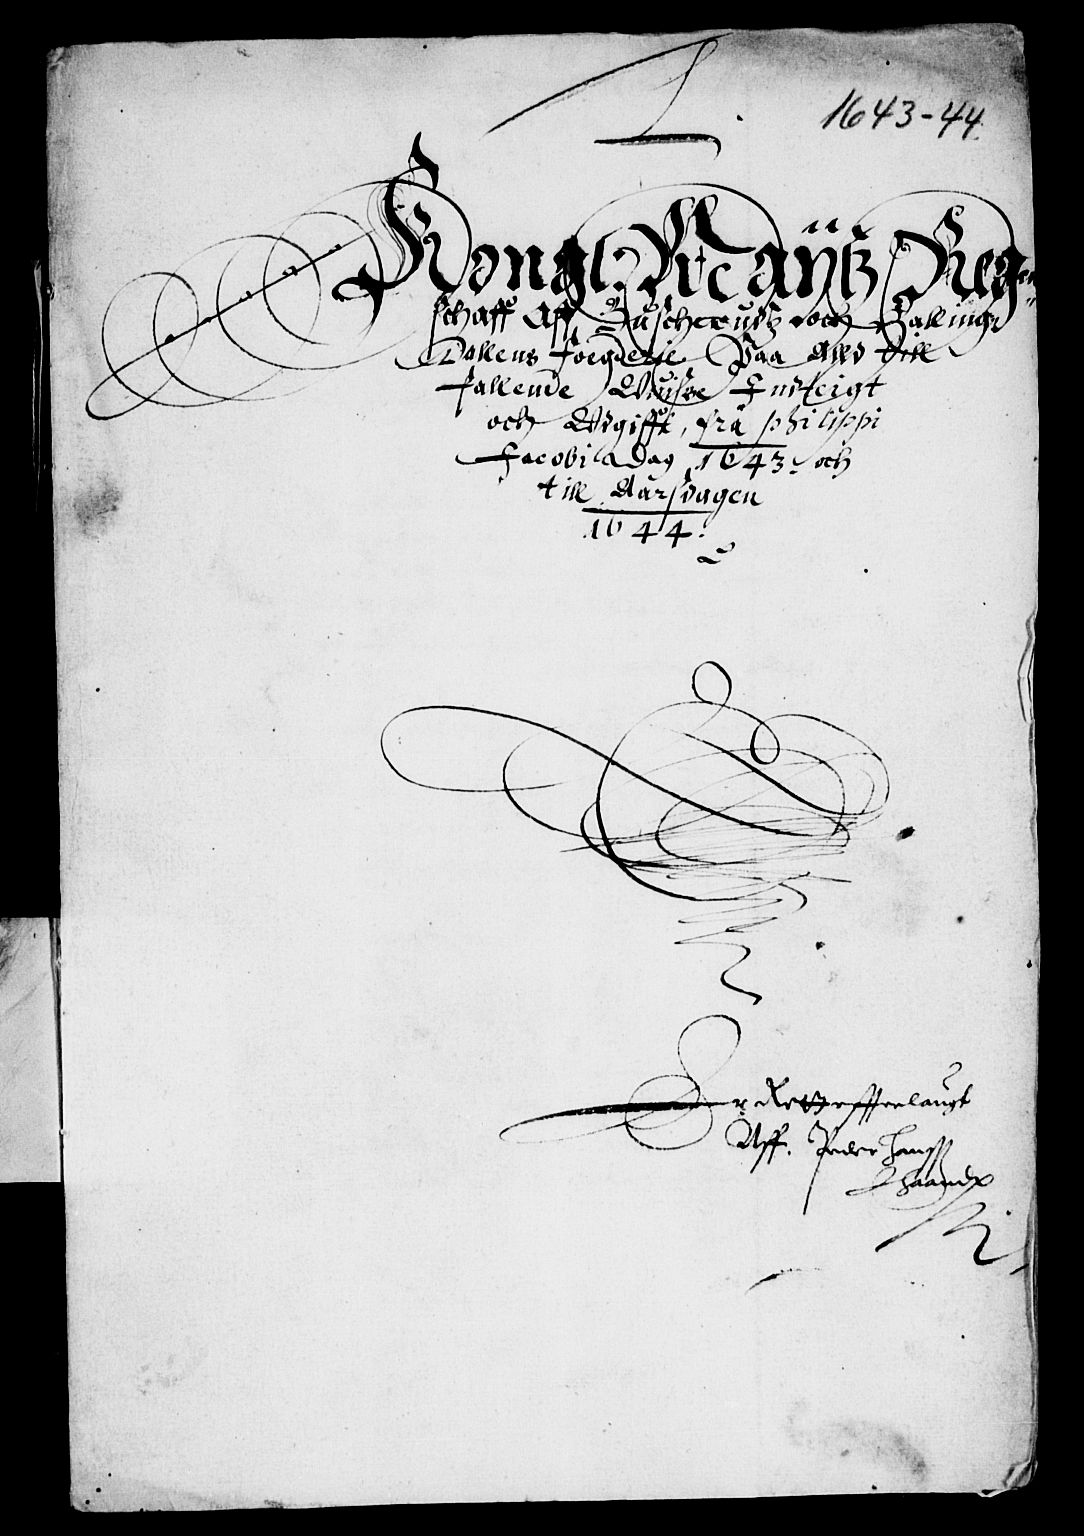 1.
1643-44.
Kongl. Maÿtz Regen
schaff Aff Buscheruds och Hallings
Dallens foegderie Paa Ald till
fallende Wuisse Indteigt
och Wdgifft, frå philippi
Jacobi Dag 1643. och
till Aarsdagen
1644.
Er Rettefferlaugt
Aff. Peder Hanss
haandx